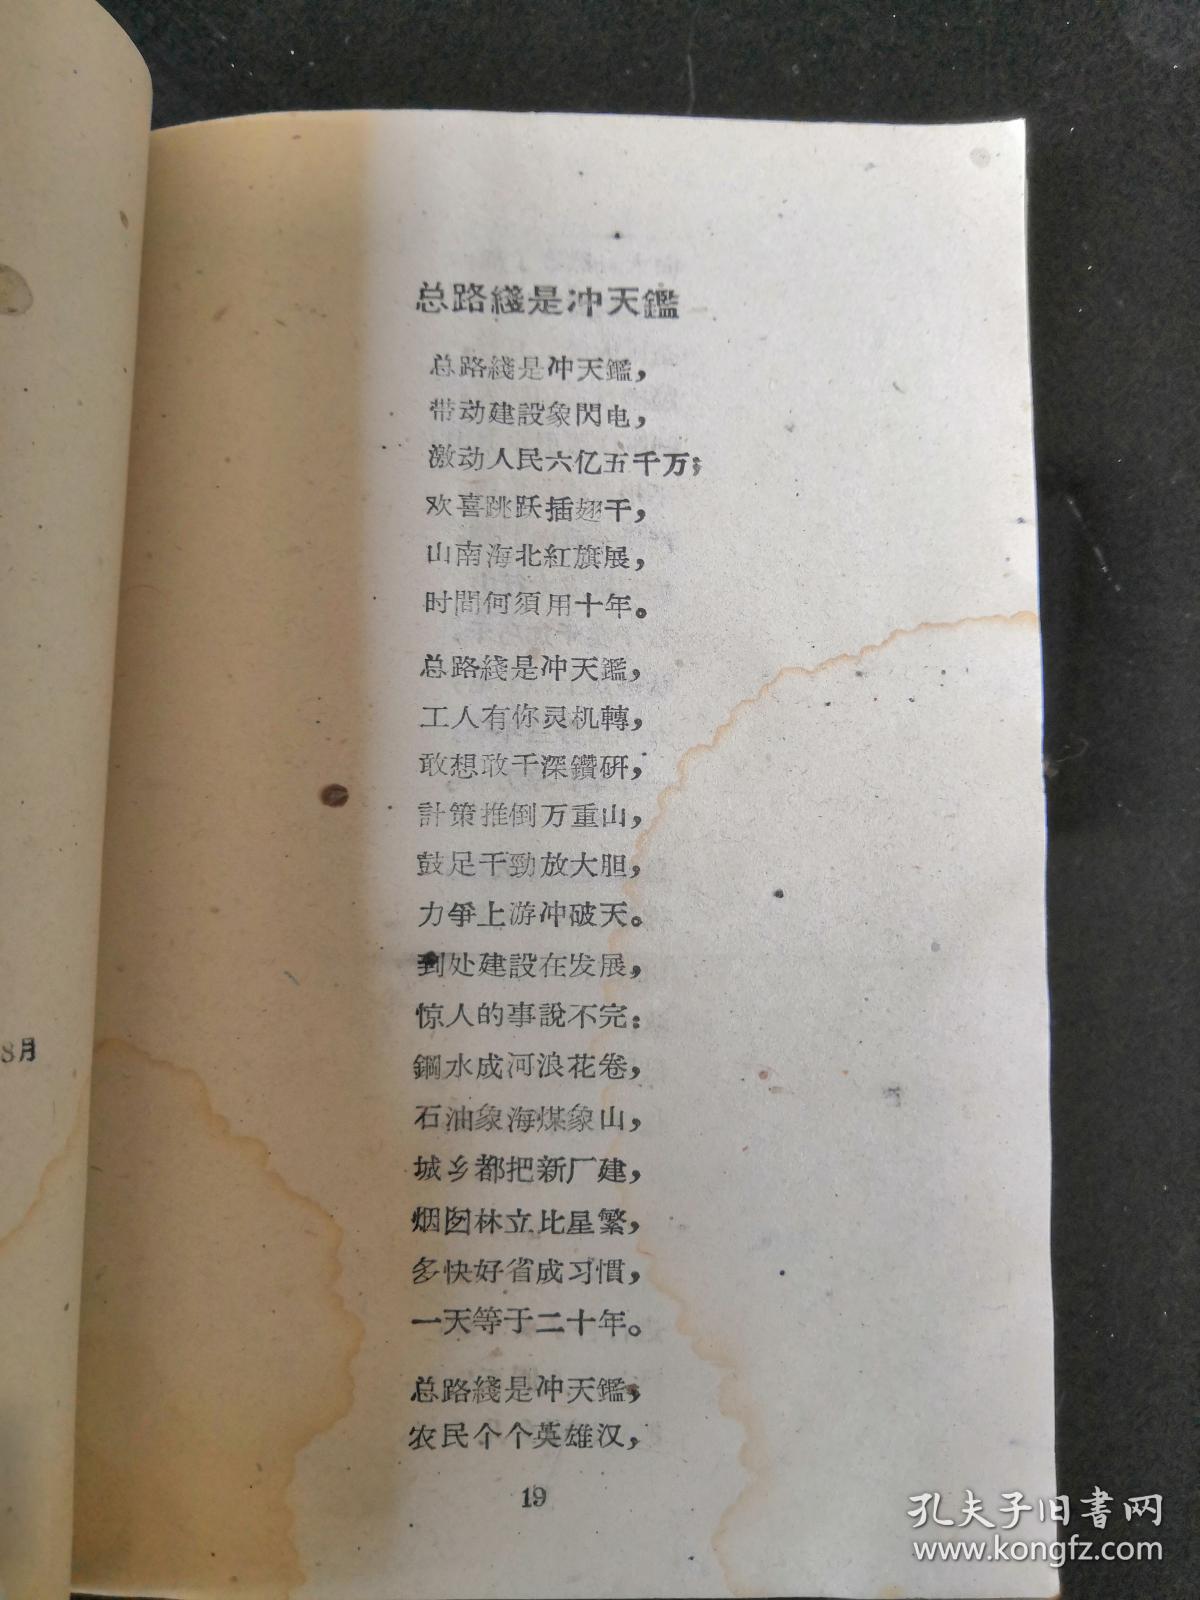 总路綫是冲天鑑
总路綫是冲天鑑，
带动建設象閃电，
激动人民六亿五千万；
欢喜跳跃插翅干，
山南海北紅旗展，
时間何須用十年。
总路綫是冲天鑑，
工人有你灵机轉，
敢想敢干深鑽研，
計策推倒万重山，
鼓足干勁放大胆，
力爭上游冲破天。
到处建設在发展，
惊人的事說不完：
鋼水成河浪花卷，
石油象海煤象山，
城乡都把新厂建，
烟囱林立比星繁，
多快好省成习慣，
一天等于二十年。
总路綫是冲天鑑，
农民个个英雄汉，
19
8月
孔夫子旧書网
www.kongfz.com